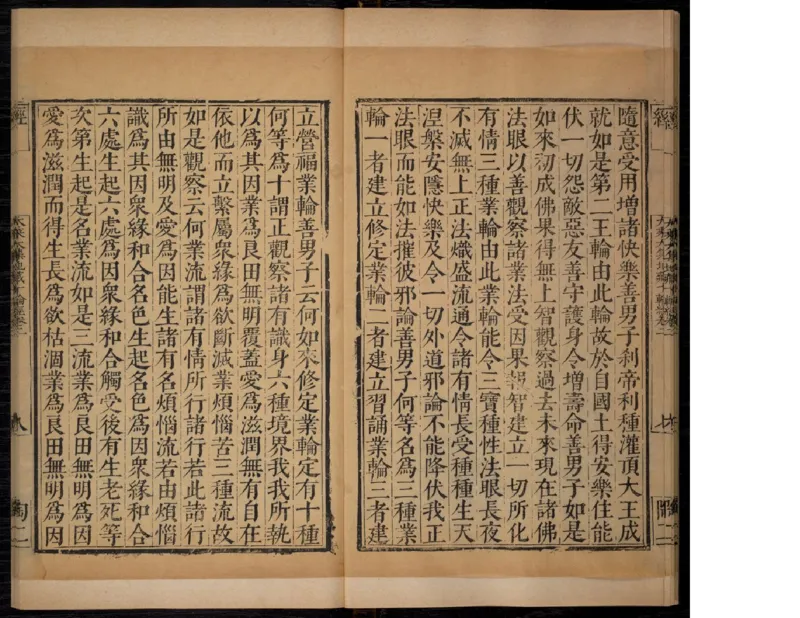 隨意受用增諸快樂善男子利帝利種灌頂大王成
就如是第二王輪由此輪故於自國土得安樂住能
伏一切怨敵惡友善守護身令增壽命善男子如是
如來初成佛果得無上智觀察過去未來現在諸佛
法眼以善觀察諸業法受因果報智建立一切所化
有情三種業輪由此業輪能令三寶種性法眼長夜
不滅無上正法熾盛流通令諸有情長受種種生天
涅槃安隱快樂及令一切外道邪論不能降伏我正
法眼而能如法摧彼邪論善男子何等名爲三種業
輪一者建立修定業輪二者建立習誦業輪三者建
立營福業輪善男子云何如來修定業輪定有十種
何等爲十謂正觀察諸有識身六種境界我我所執
以爲其因業爲良田無明覆蓋愛爲滋潤無有自在
依他而立繫屬衆緣爲欲斷滅業煩惱苦三種流故
如是觀察云何業流謂諸有情所行諸行若此諸行
所由無明及愛爲因能生諸有名煩惱流若由煩惱
識爲其因衆緣和合名色生起名色爲因衆緣和合
六處生起六處爲因衆緣和合觸受後有生老死等
次第生起是名業流如是三流業爲良田無明爲因
愛爲滋潤而得生長爲欲枯涸業爲良田無明爲因